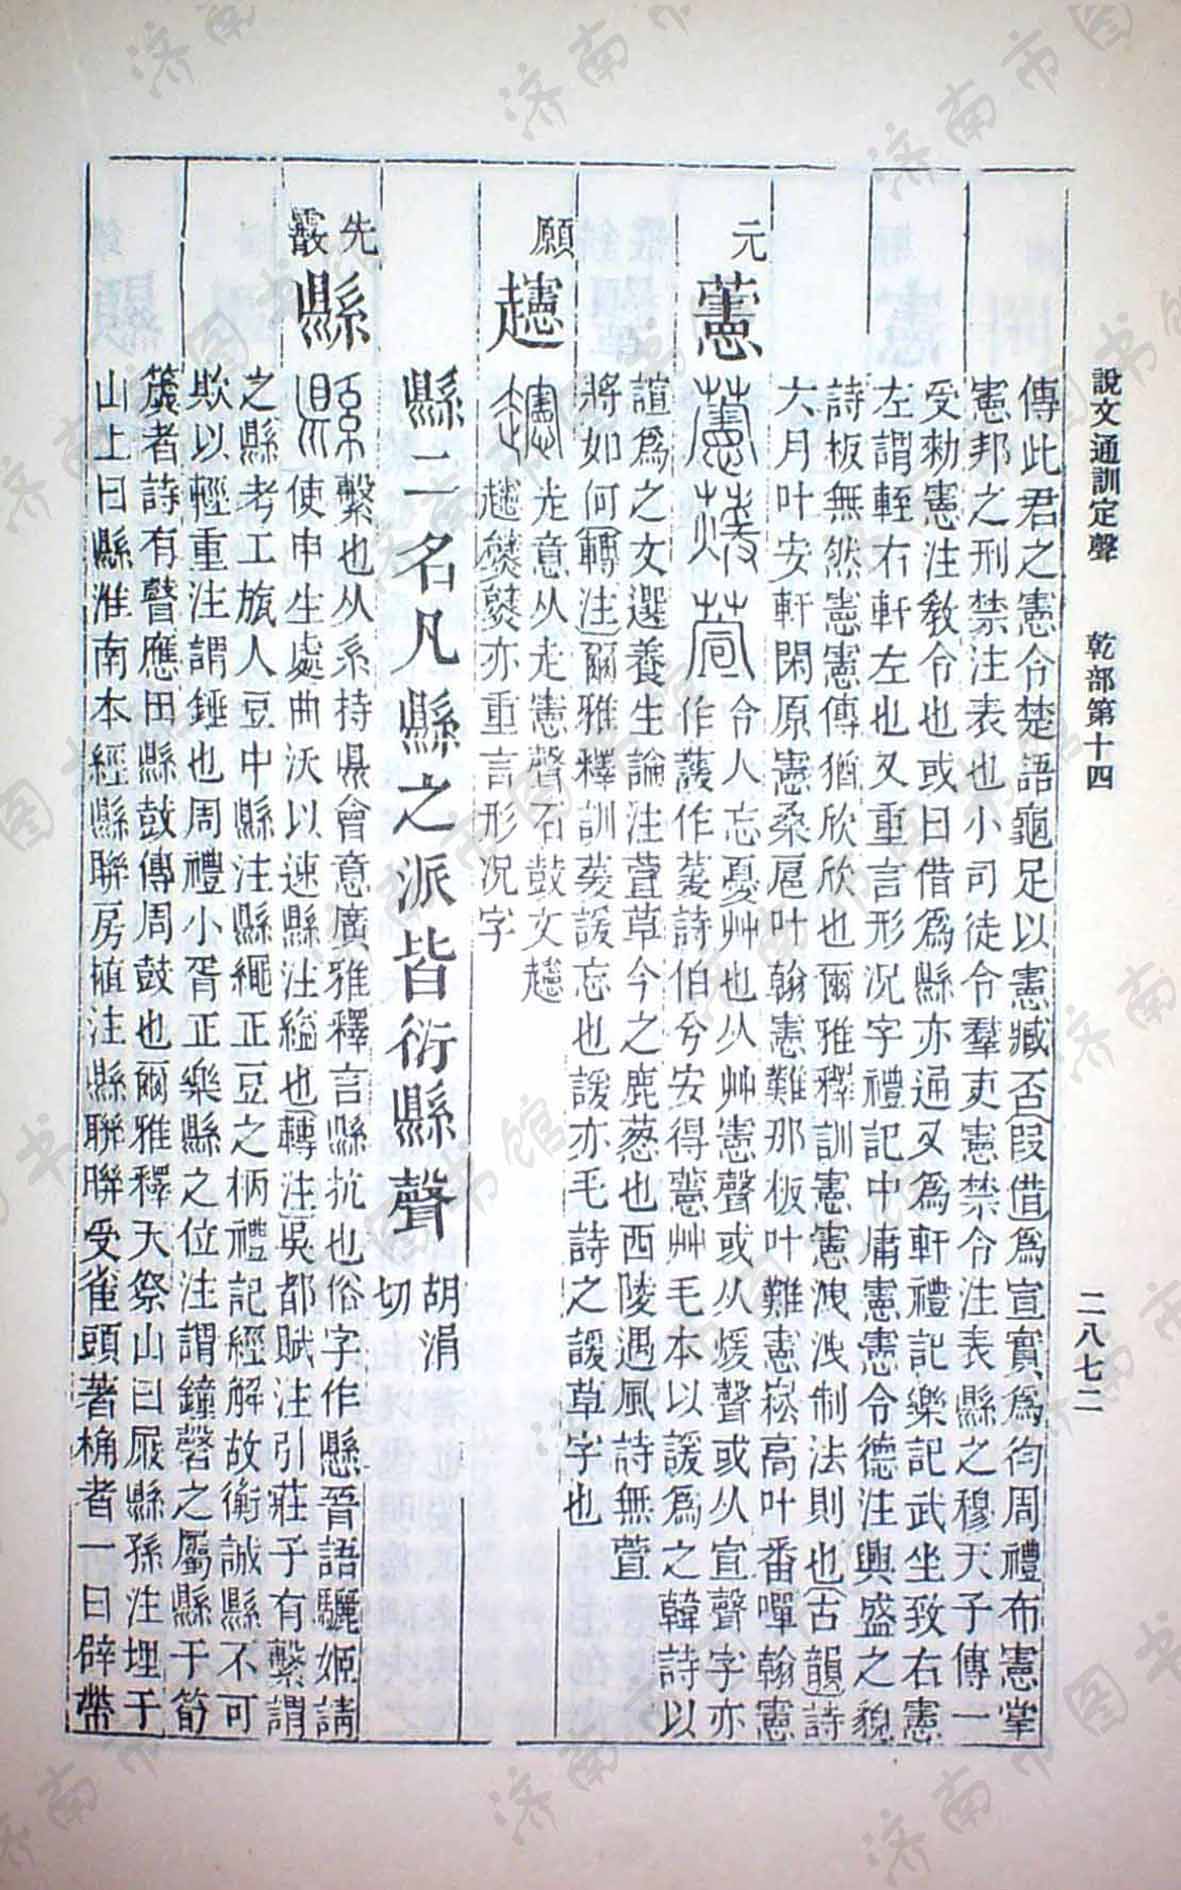 說文通訓定聲　乾部第十四　二八七二
傳此君之憲令楚語龜足以憲臧否叚借爲宣實爲徇周禮布憲掌
憲邦之刑禁注表也小司徒令羣吏憲禁令注表縣之穆天子傳一
受勑憲注敎令也或曰借爲縣亦通又爲軒禮記樂記武坐致右憲
左謂輊右軒左也又重言形況字禮記中庸憲憲令德注興盛之貌
詩板無然憲憲傳猶欣欣也爾雅釋訓憲憲洩洩制法則也古韻詩
六月叶安軒閑原憲桑扈叶翰憲難那板叶難憲崧高叶番嘽翰憲
元
藼
令人忘憂艸也从艸憲聲或从煖聲或从宣聲字亦
作蘐作萲詩伯兮安得藼艸毛本以諼爲之韓詩以
諠爲之文選養生論注萱草今之鹿葱也西陵遇風詩無萱
將如何轉注爾雅釋訓萲諼忘也諼亦毛詩之諼草字也
願
趮
走意从走憲聲石鼓文
趮趮㷼㷼亦重言形況字
縣二名凡縣之派皆衍縣聲
胡涓
切
先
霰
縣
繫也从系持県會意廣雅釋言縣抗也俗字作懸晉語驪姬請
使申生處曲沃以速縣注縊也轉注吳都賦注引莊子有繫謂
之縣考工旊人豆中縣注縣繩正豆之柄禮記經解故衡誠縣不可
欺以輕重注謂錘也周禮小胥正樂縣之位注謂鐘磬之屬縣于筍
簴者詩有瞽應田縣鼓傳周鼓也爾雅釋天祭山曰庪縣孫注埋于
山上曰縣淮南本經縣聯房植注縣聯聯受雀頭著桷者一曰辟帶